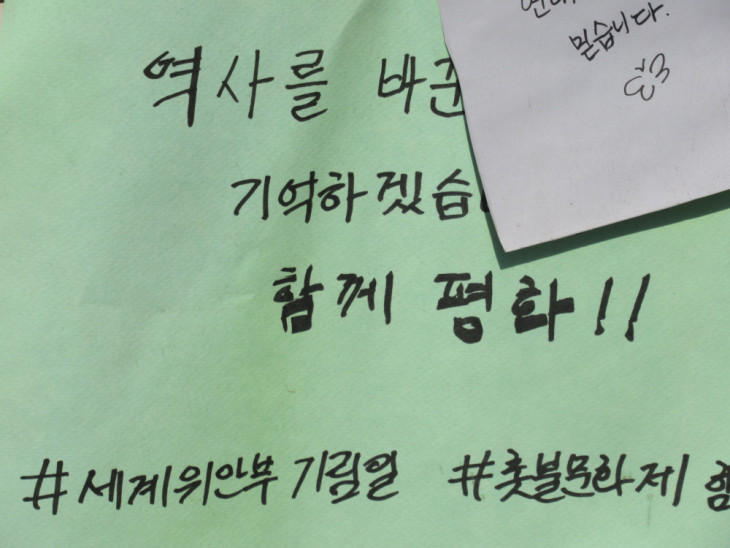 믿습니다.
역사를 바꾼
기억하겠습
함께 평화!!
#세계위안부 기림일 #촛불문화제